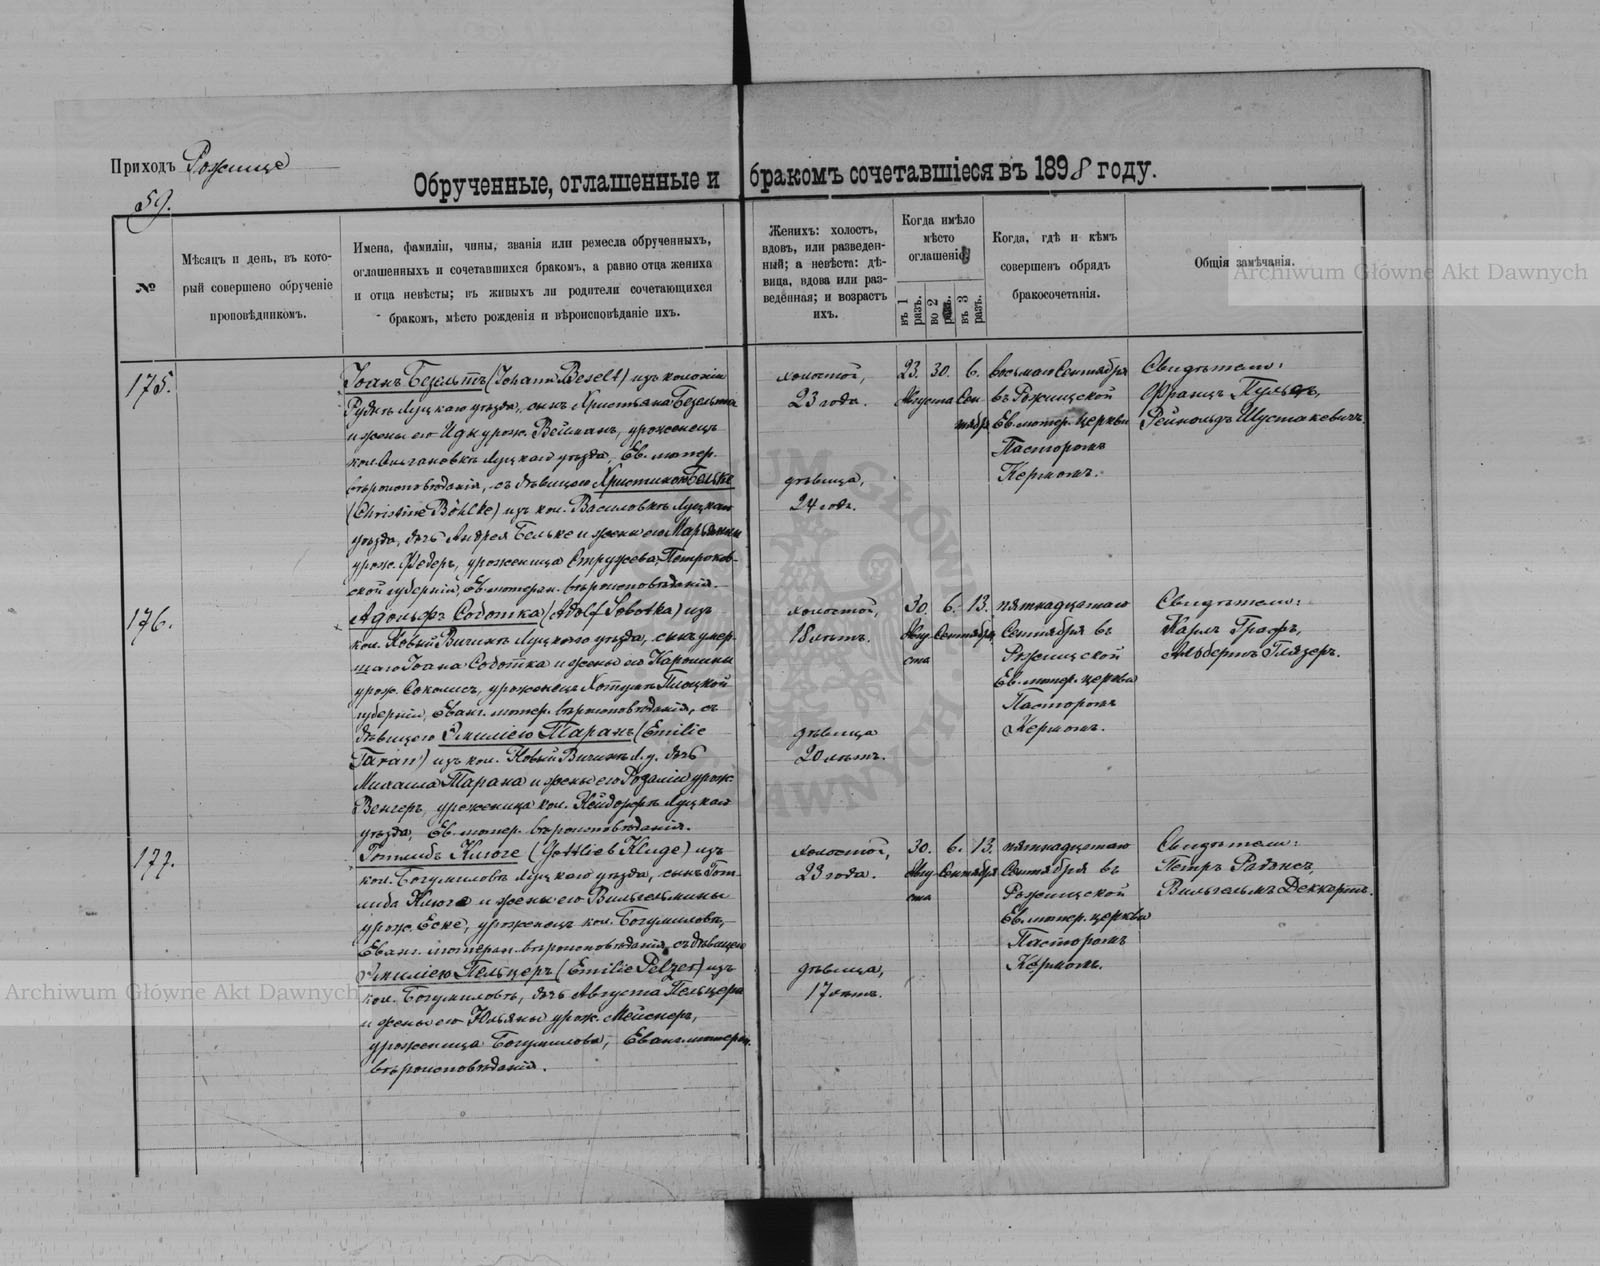 Приходъ Рожище
59.
Обрученные, оглашенные и бракомъ сочетавшіеся въ 1898 году.
№
Мѣсяцъ и день, въ кото-
рый совершено обрученіе
проповѣдникомъ.
Имена, фамиліи, чины, званія или ремесла обрученныхъ,
оглашенныхъ и сочетавшихся бракомъ, а равно отца жениха
и отца невѣсты; въ живыхъ ли родители сочетающихся
бракомъ, мѣсто рожденія и вѣроисповѣданіе ихъ.
Женихъ: холостъ,
вдовъ, или разведен-
ный; а невѣста: дѣ-
вица, вдова или раз-
веденная; и возрастъ
ихъ.
Когда имѣло
мѣсто
оглашеніе
въ 1 разъ.
во 2 разъ.
въ 3 разъ.
Когда, гдѣ и кѣмъ
совершенъ обрядъ
бракосочетанія.
Общія замѣчанія.
Archiwum Główne Akt Dawnych
175.
Іоанъ Безельтъ (Johann Beselt) изъ колоніи
Луцкаго уѣзда, сынъ Христьяна Безельта
и жены его Иды урож. Вейманъ, уроженецъ
кол. Луцкаго уѣзда, Ев. лютер.
вѣроисповѣданія, съ дѣвицею Христиною Бельке
(Christine Böhlke) изъ кол. Василовкъ Луцкаго
уѣзда, дочь Андрея Бельке и жены его Марьянны
урож. Федеръ, уроженица Стружева, Петроков-
ской губерніи, Ев. лютеран. вѣроисповѣданія.
холостой,
23 года.
дѣвица,
24 года.
23. 30. 6.
Августа Сен-
тября
восьмаго Сентября
въ Рожищской
Ев. лютер. церкви
Пасторомъ
Кермомъ.
Свидѣтели:
Францъ
Рейнольдъ Шустакевичъ
176.
Адольфъ Соботка (Adolf Sobotka) изъ
кол. Новый Луцкаго уѣзда, сынъ умер-
шаго Іоана Соботка и жены его Каролины
урож. уроженецъ Плоцкой
губерніи, Еванг. лютер. вѣроисповѣданія, съ
дѣвицею Эмиліею Таранъ (Emilie
Taran) изъ кол. Новый Л. у. дочь
Михаила Тарана и жены его Розаліи урож.
Венгеръ, уроженица кол. Нейдорфъ Луцкаго
уѣзда, Ев. лютер. вѣроисповѣданія.
холостой,
18 лѣтъ.
дѣвица
20 лѣтъ.
30. 6. 13.
Авгу- Сентября
ста
пятнадцатаго
Сентября въ
Рожищской
Ев. лютер. церкви
Пасторомъ
Кермомъ.
Свидѣтели:
Карлъ Графъ,
Альбертъ Глязеръ.
177.
Готлибъ Клюге (Gottlieb Kluge) изъ
кол. Богумиловъ Луцкаго уѣзда, сынъ Гот-
либа Клюге и жены его Вильгельмины
урож. Еске, уроженецъ кол. Богумиловъ,
Еванг. лютеран. вѣроисповѣданія, съ дѣвицею
Эмиліею Пельцеръ (Emilie Pelzer) изъ
кол. Богумиловъ, дочь Августа Пельцера
и жены его Юльяны урож. Мейснеръ,
уроженица Богумилова, Еванг. лютеран.
вѣроисповѣданія.
холостой,
23 года.
дѣвица,
17 лѣтъ.
30. 6. 13.
Авгу- Сентября
ста
пятнадцатаго
Сентября въ
Рожищской
Ев. лютер. церкви
Пасторомъ
Кермомъ.
Свидѣтели:
Петръ
Вильгельмъ Деккертъ.
Archiwum Główne Akt Dawnych